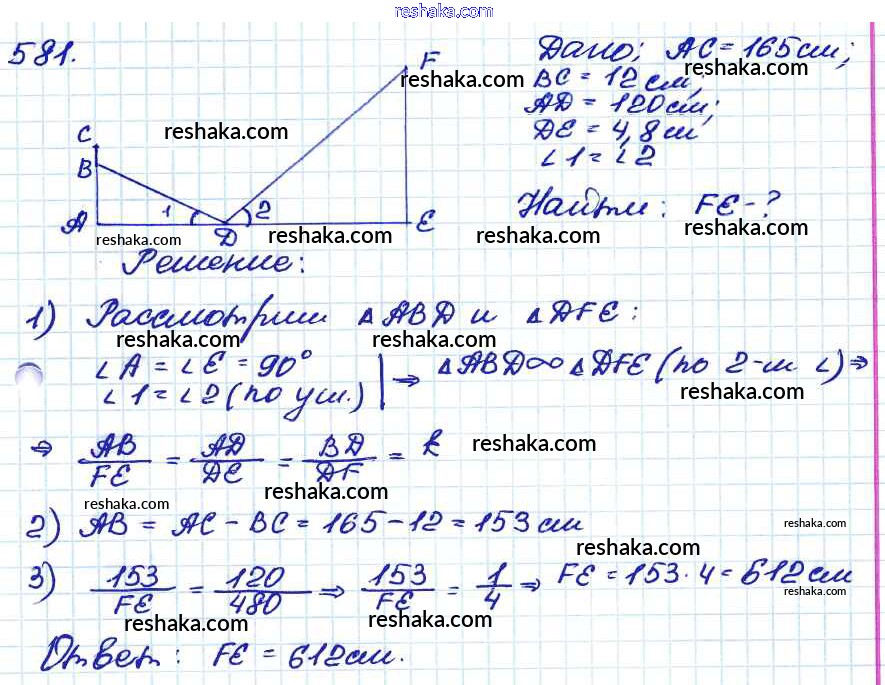 reshaka.com
581.
Дано: AC = 165 см;
BC = 12 см,
AD = 120 см;
DE = 4,8 м
∠1 = ∠2
Найти: FE - ?
F
C
B
A
1
D
2
E
Решение:
1) Рассмотрим △ABD и △DFE:
∠A = ∠E = 90°
∠1 = ∠2 (по усл.) | ⇒ △ABD ∞ △DFE (по 2-м ∠) ⇒
⇒ AB/FE = AD/DE = BD/DF = k
2) AB = AC - BC = 165 - 12 = 153 см
3) 153/FE = 120/480 ⇒ 153/FE = 1/4 ⇒ FE = 153 · 4 = 612 см
Ответ: FE = 612 см.
reshaka.com
reshaka.com
reshaka.com
reshaka.com
reshaka.com
reshaka.com
reshaka.com
reshaka.com
reshaka.com
reshaka.com
reshaka.com
reshaka.com
reshaka.com
reshaka.com
reshaka.com
reshaka.com
reshaka.com
reshaka.com
reshaka.com